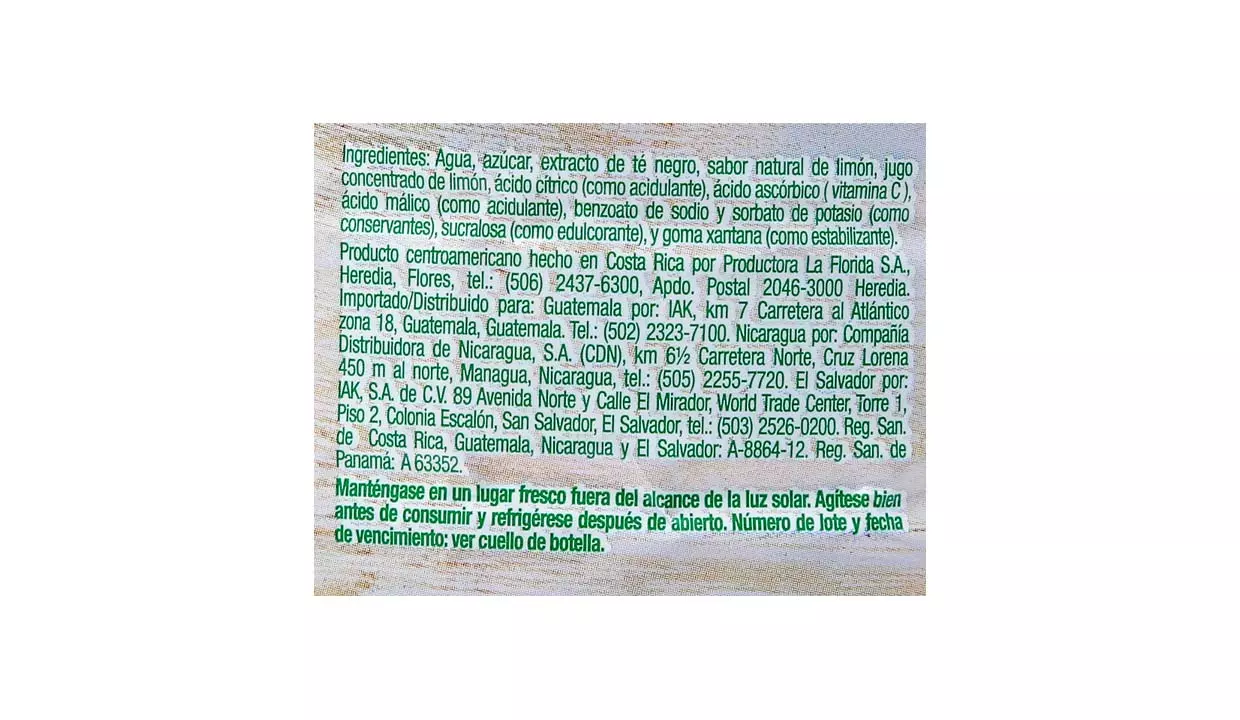 Ingredientes: Agua, azúcar, extracto de té negro, sabor natural de limón, jugo
concentrado de limón, ácido cítrico (como acidulante), ácido ascórbico ( vitamina C ),
ácido málico (como acidulante), benzoato de sodio y sorbato de potasio (como
conservantes), sucralosa (como edulcorante), y goma xantana (como estabilizante).
Producto centroamericano hecho en Costa Rica por Productora La Florida S.A.,
Heredia, Flores, tel.: (506) 2437-6300, Apdo. Postal 2046-3000 Heredia.
Importado/Distribuido para: Guatemala por: IAK, km 7 Carretera al Atlántico
zona 18, Guatemala, Guatemala. Tel.: (502) 2323-7100. Nicaragua por: Compañía
Distribuidora de Nicaragua, S.A. (CDN), km 6½ Carretera Norte, Cruz Lorena
450 m al norte, Managua, Nicaragua, tel.: (505) 2255-7720. El Salvador por:
IAK, S.A. de C.V. 89 Avenida Norte y Calle El Mirador, World Trade Center, Torre 1,
Piso 2, Colonia Escalón, San Salvador, El Salvador, tel.: (503) 2526-0200. Reg. San.
de Costa Rica, Guatemala, Nicaragua y El Salvador: A-8864-12. Reg. San. de
Panamá: A 63352.
Manténgase en un lugar fresco fuera del alcance de la luz solar. Agítese bien
antes de consumir y refrigérese después de abierto. Número de lote y fecha
de vencimiento: ver cuello de botella.